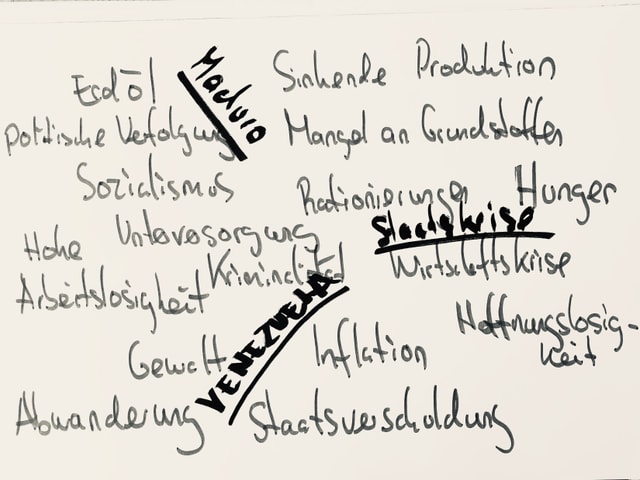 Erdöl
Maduro
Sinkende Produktion
Politische Verfolgung
Mangel an Grundstoffen
Sozialismus
Rationierungen
Hunger
Staatskrise
Hohe
Arbeitslosigkeit
Unterversorgung
Kriminalität
Wirtschaftskrise
VENEZUELA
Hoffnungslosig-
keit
Gewalt
Inflation
Abwanderung
Staatsverschuldung